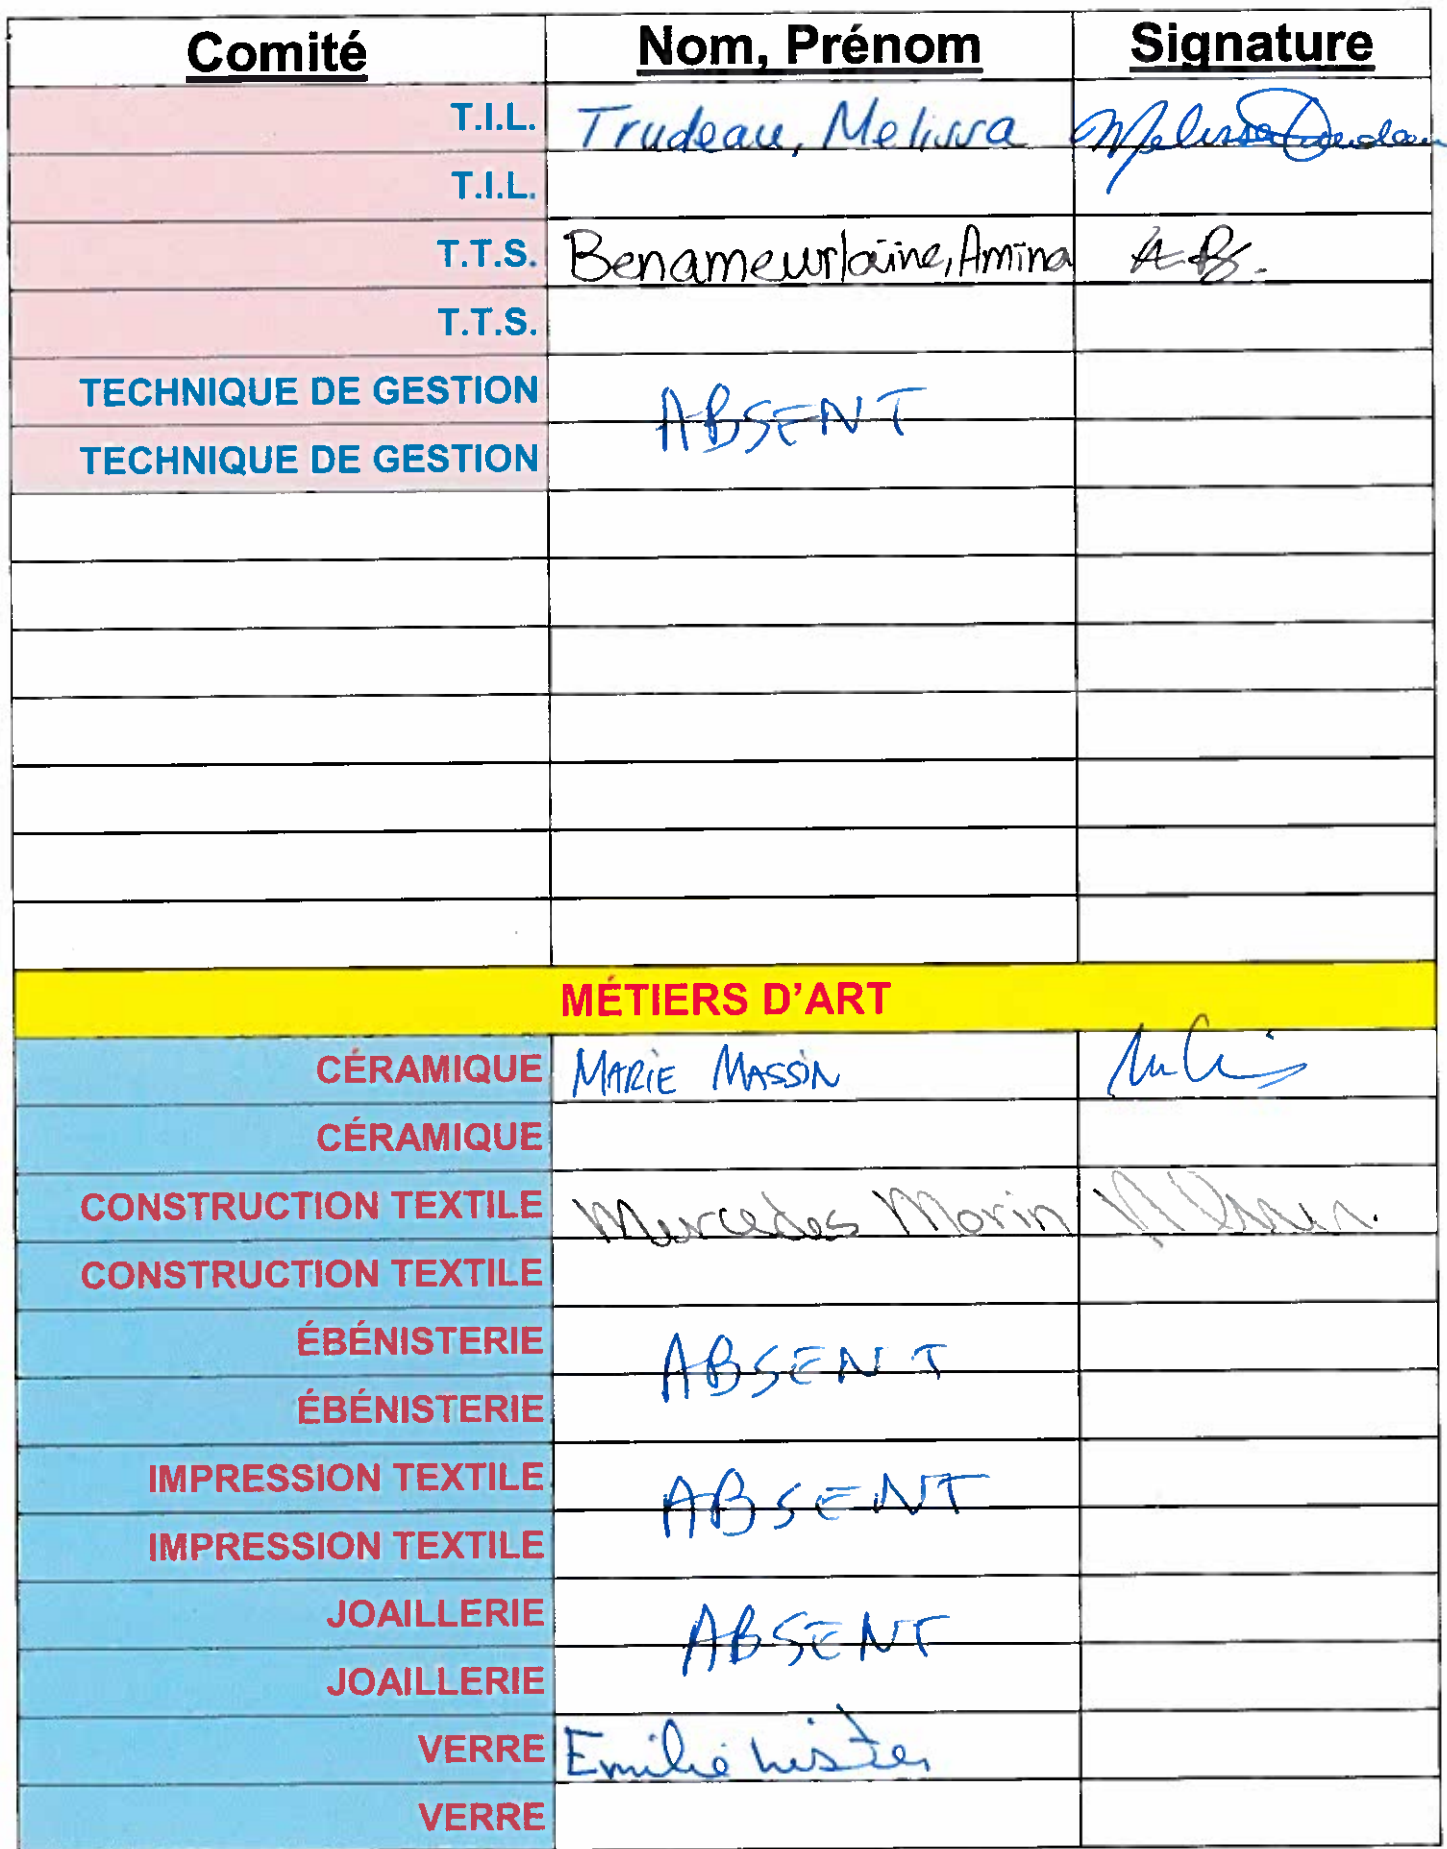 Comité Nom, Prénom Signature
T.I.L. Trudeau, Melissa Melissa Trudeau
T.I.L.
T.T.S. Benameurlaine, Amina A.B.
T.T.S.
TECHNIQUE DE GESTION ABSENT
TECHNIQUE DE GESTION
MÉTIERS D'ART
CÉRAMIQUE MARIE MASSIN
CÉRAMIQUE
CONSTRUCTION TEXTILE Mercedes Morin
CONSTRUCTION TEXTILE
ÉBÉNISTERIE ABSENT
ÉBÉNISTERIE
IMPRESSION TEXTILE ABSENT
IMPRESSION TEXTILE
JOAILLERIE ABSENT
JOAILLERIE
VERRE Emilie
VERRE